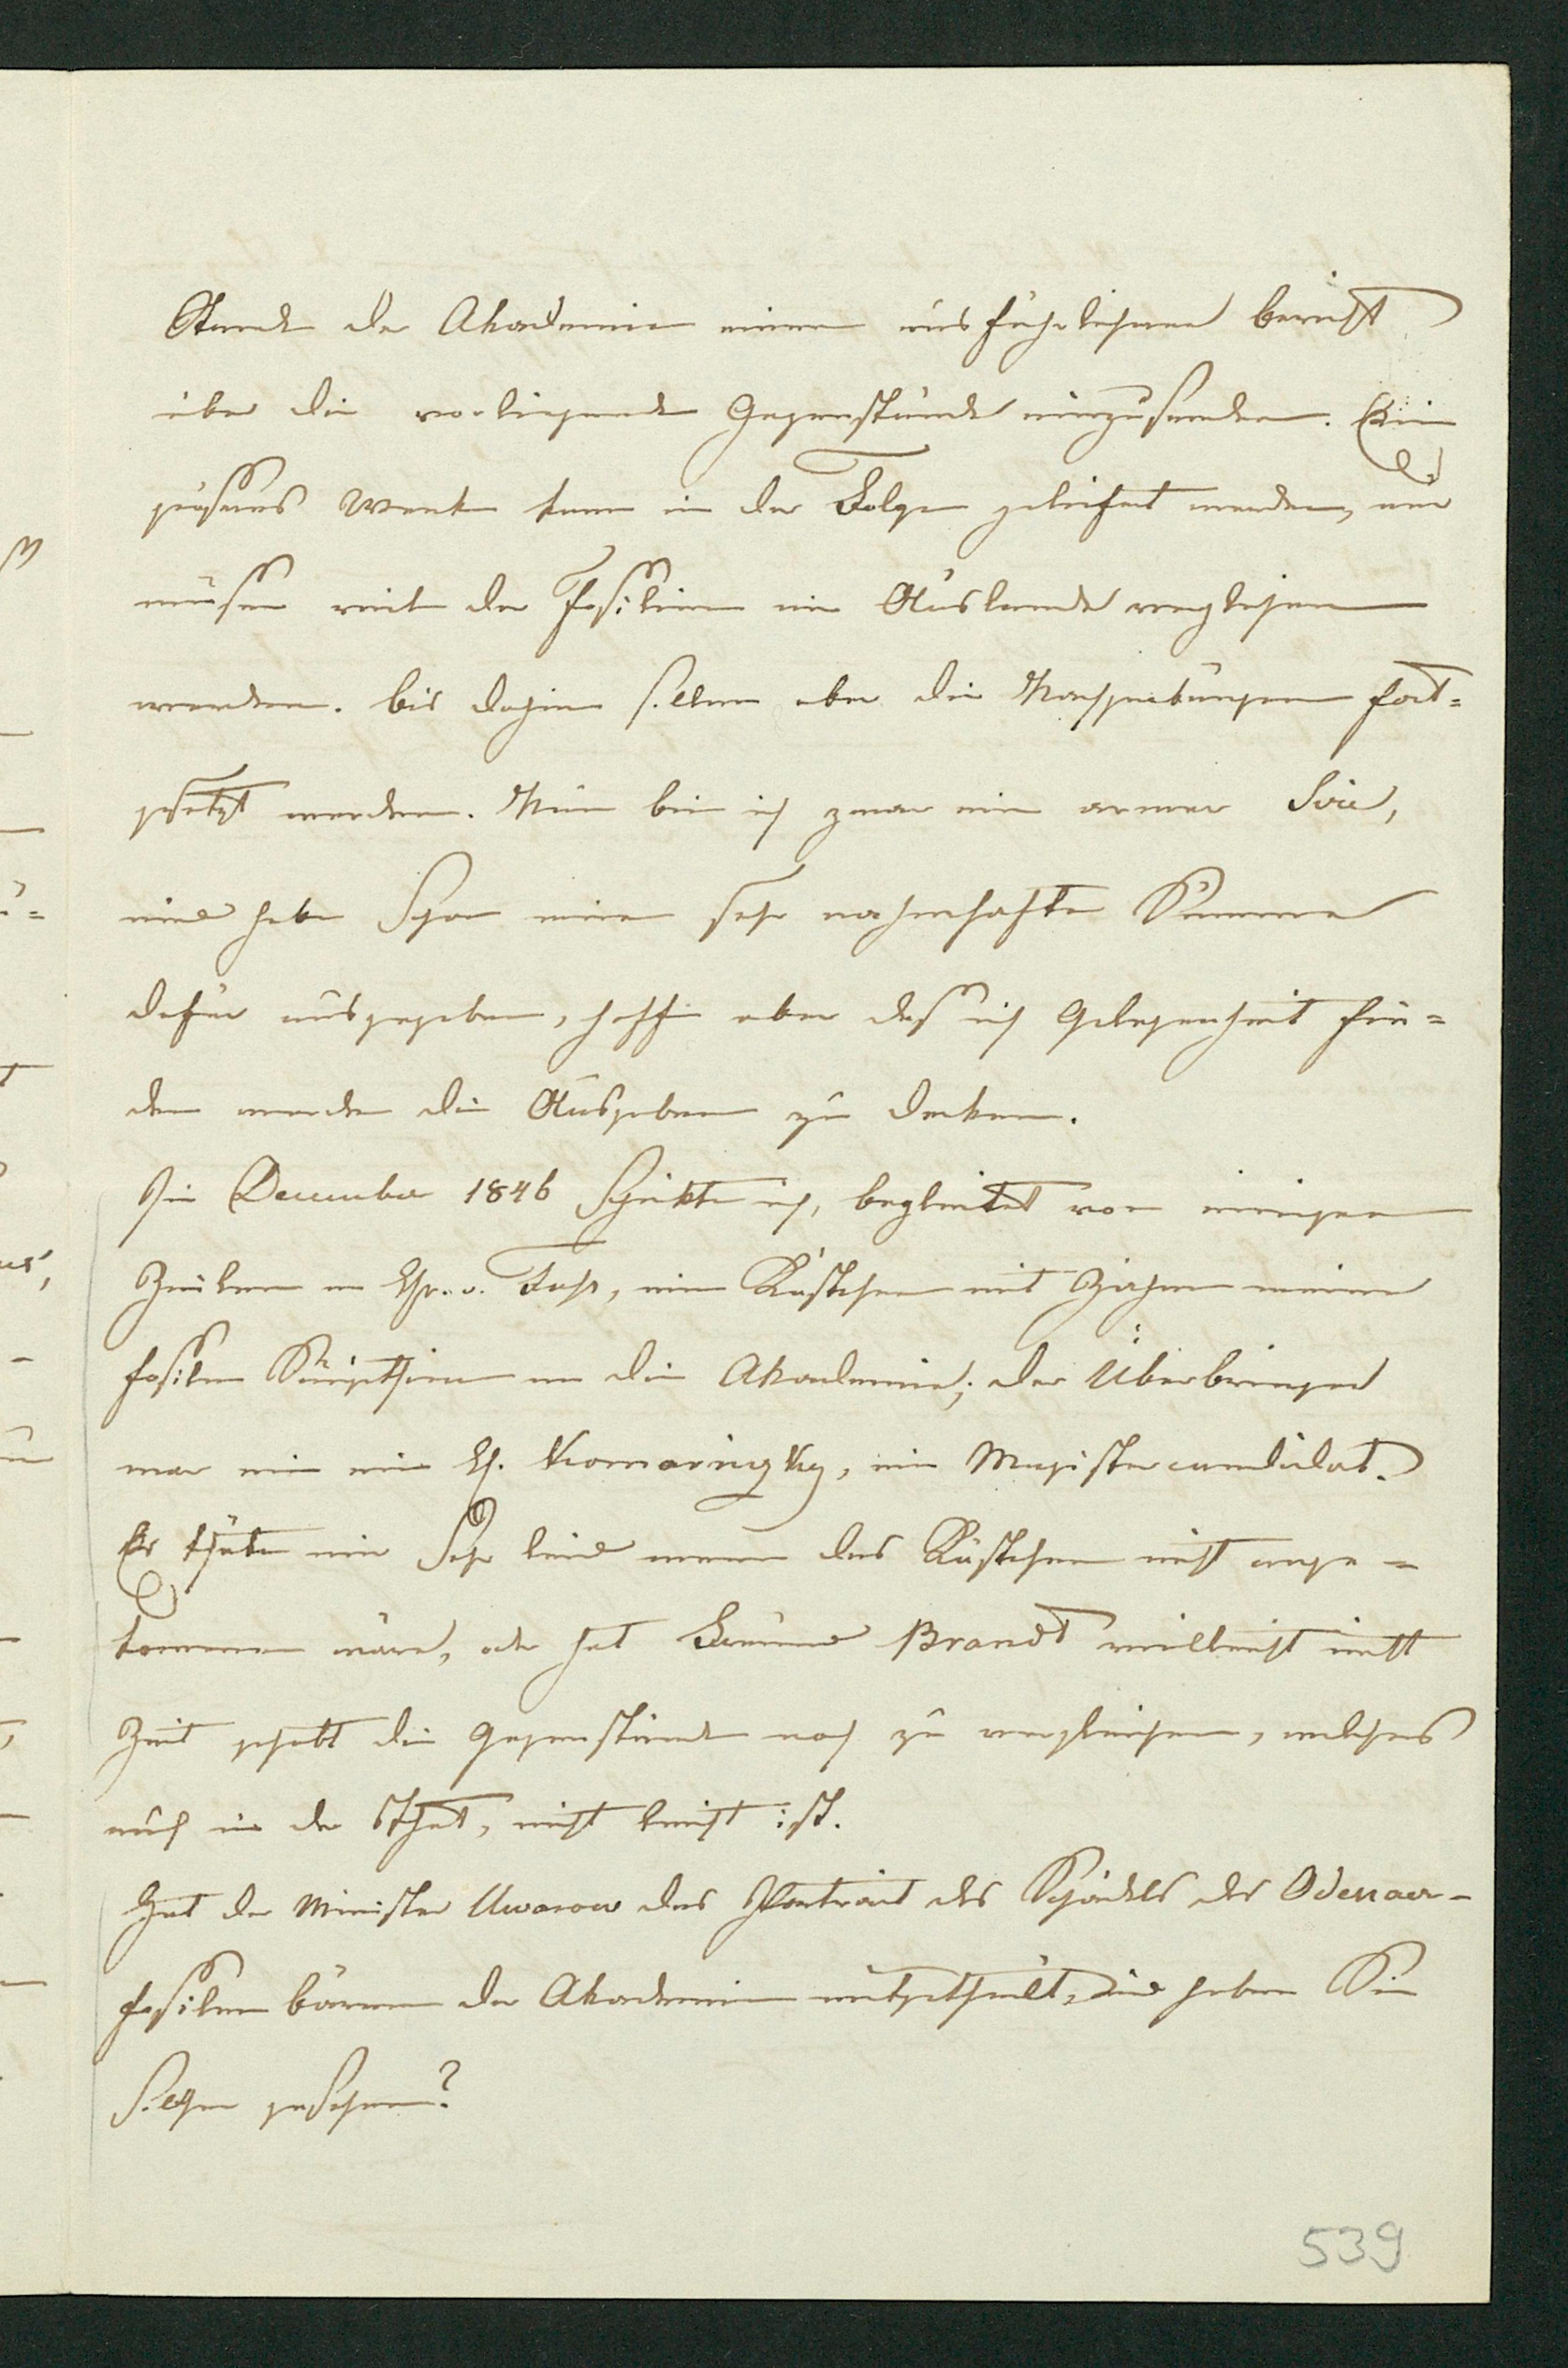 Stande der Akademie einen ausführlichen bericht
über die vorliegende Gegenstände einzusenden. Ein
größeres Werk kan in der Folge geliefert werden, und
müßen mit den Foßilien im Auslande verglichen
werden. bis dahin sollen aber die Nachgrabungen fort=
gesetzt werden. Nun bin ich zwar ein armer
und habe schon eine sehr nahmhafte Summe
dafür ausgegeben, hoffe aber daß ich Gelegenheit fin=
den werde die Ausgaben zu decken.
Im December 1846 schickte ich, begleitet von einigen
Zeilen an Hr. v. Fuhs, ein Kästchen mit Zähnen meiner
foßilen Säugthiere an die Akademie; der Überbringer
war ein ein H. Komarnizky, ein Magistercandidat.
Es thäte mir sehr leid wenn das Kästchen nicht ange=
kommen wäre, oder hat Freund Brandt vielleicht nicht
Zeit gehabt die Gegenstände noch zu vergleichen, welches
auch in der That, nicht leicht ist.
Hat der Minister Uwarow das Portrait des Schädels der Odessaer-
foßilen bären der Akademie mitgetheilt, und haben Sie
solche gesehen?
539